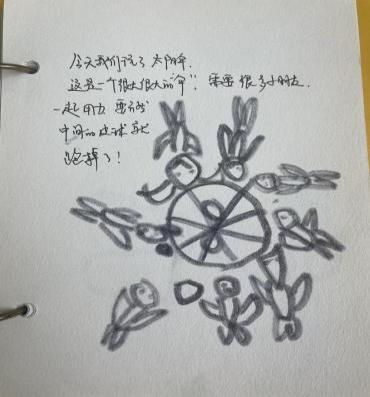 今天我们玩了太阳伞.
这是一个很大很大的"伞"! 需要很多小朋友
一起用力 要不然
中间的皮球就
跑掉了!